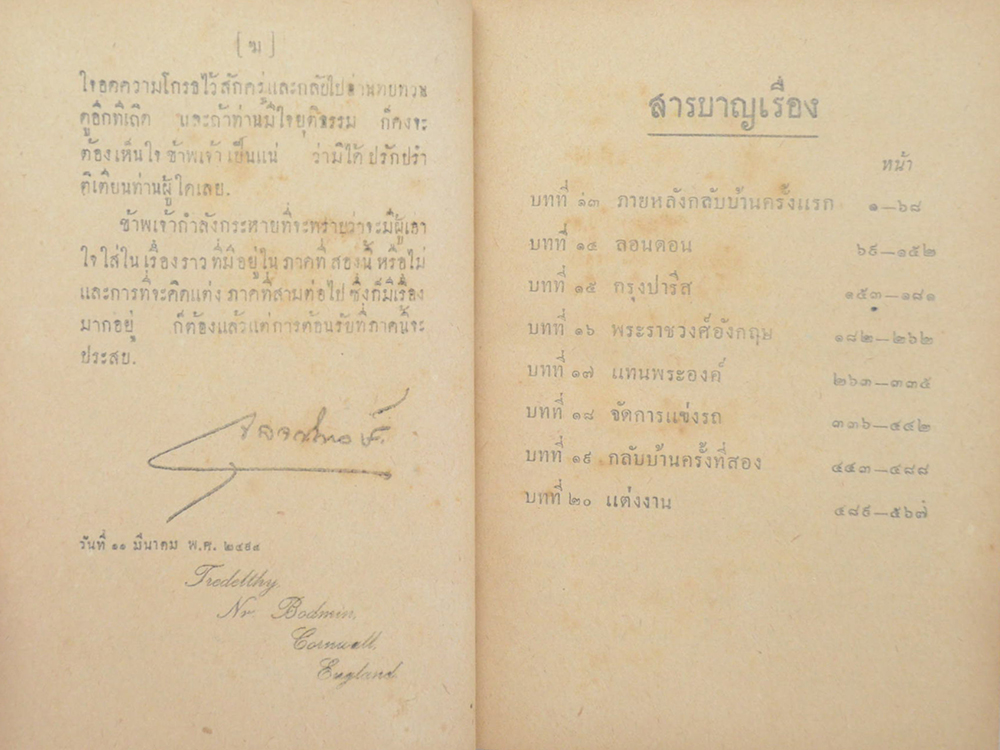 ใจอดความโกรธไว้สักครู่และกลับไปอ่านทบทวน
ดูอีกทีเถิด และถ้าท่านมีใจยุติธรรม ก็คงจะ
ต้องเห็นใจ ข้าพเจ้า เป็นแน่ ว่ามิได้ ปรักปรำ
ติเตียนท่านผู้ใดเลย.
ข้าพเจ้ากำลังกระหายที่จะทราบว่าจะมีผู้เอา
ใจใส่ใน เรื่องราว ที่มี อยู่ใน ภาคที่ สองนี้ หรือไม่
และการที่จะคิดแต่ง ภาคที่สามต่อไป ซึ่งก็มีเรื่อง
มากอยู่ ก็ต้องแล้วแต่การต้อนรับที่ภาคนี้จะ
ประสบ.
วันที่ ๑๑ มีนาคม พ.ศ. ๒๔๙๔
Tredethy,
Nr. Bodmin,
Cornwall,
England.
สารบาญเรื่อง
หน้า
บทที่ ๑๓ ภายหลังกลับบ้านครั้งแรก ๑—๖๘
บทที่ ๑๔ ลอนดอน ๖๙—๑๕๒
บทที่ ๑๕ กรุงปารีส ๑๕๓—๑๘๑
บทที่ ๑๖ พระราชวงศ์อังกฤษ ๑๘๒—๒๖๒
บทที่ ๑๗ แทนพระองค์ ๒๖๓—๓๓๕
บทที่ ๑๘ จัดการแข่งรถ ๓๓๖—๔๔๒
บทที่ ๑๙ กลับบ้านครั้งที่สอง ๔๔๓—๔๘๘
บทที่ ๒๐ แต่งงาน ๔๘๙—๕๖๗